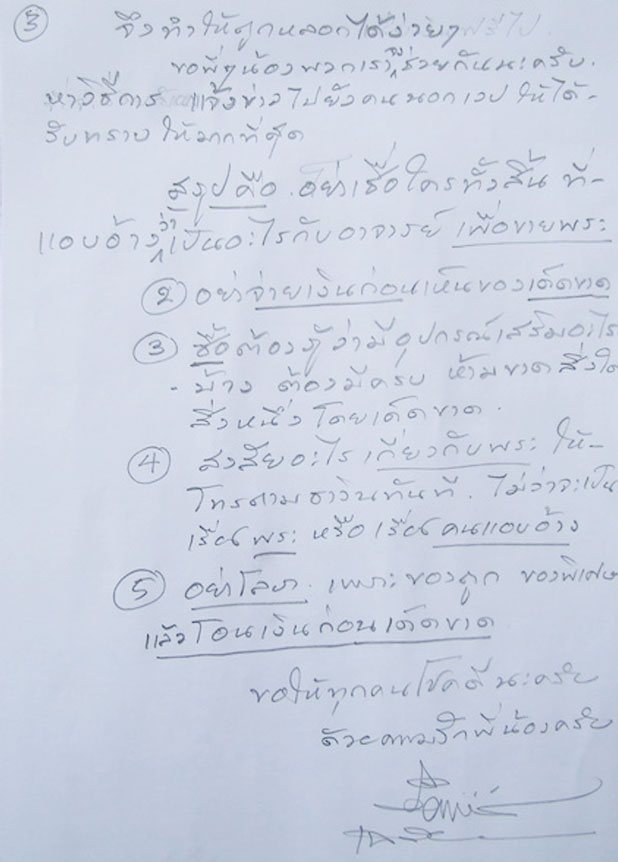 ③
จึงทำให้ถูกหลอกได้ง่ายๆ ฟรีไป
ขอพี่ๆน้องพวกเราจงช่วยกันนะครับ.
หาวิธีการ แจ้งข่าวไปยังคนนอกเวป ให้ได้-
รับทราบ ให้มากที่สุด
สรุปคือ. อย่าเชื่อใครทั้งสิ้น ที่-
แอบอ้างว่าเป็นอะไรกับอาจารย์ เพื่อขายพระ
② อย่าจ่ายเงินก่อนเห็นของเด็ดขาด
③ ซื้อต้องรู้ว่ามีอุปกรณ์เสริมอะไร
- บ้าง ต้องมีครบ ห้ามขาดสิ่งใด
สิ่งหนึ่ง โดยเด็ดขาด.
④ สงสัยอะไรเกี่ยวกับพระ ให้-
โทรถามธาวินทันที. ไม่ว่าจะเป็น
เรื่องพระ หรือ เรื่องคนแอบอ้าง
⑤ อย่าโลภ. เพราะของถูก ของพิเศษ
แล้วโอนเงินก่อนเด็ดขาด
ขอให้ทุกคนโชคดีนะครับ
ด้วยความรักพี่น้องครับ